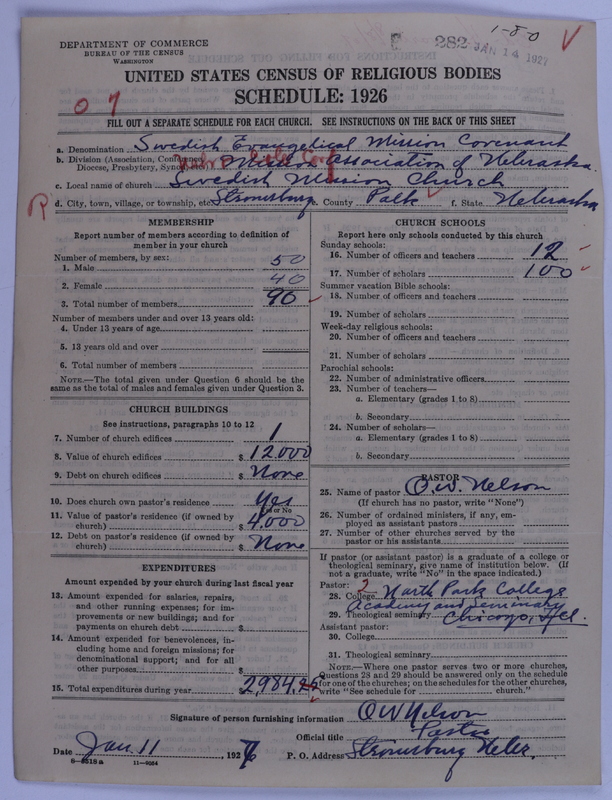 1-80
DEPARTMENT OF COMMERCE
BUREAU OF THE CENSUS
WASHINGTON
282 JAN 14 1927
UNITED STATES CENSUS OF RELIGIOUS BODIES
SCHEDULE: 1926
07
FILL OUT A SEPARATE SCHEDULE FOR EACH CHURCH. SEE INSTRUCTIONS ON THE BACK OF THIS SHEET
a. Denomination Swedish Evangelical Mission Covenant
b. Division (Association, Conference, Diocese, Presbytery, Synod, etc.) Mission Association of Nebraska
c. Local name of church Swedish Mission Church
d. City, town, village, or township, etc. Stromsburg e. County Polk f. State Nebraska
R
MEMBERSHIP
Report number of members according to definition of
member in your church
Number of members, by sex:
1. Male 50
2. Female 40
3. Total number of members 90
Number of members under and over 13 years old:
4. Under 13 years of age
5. 13 years old and over
6. Total number of members
NOTE.—The total given under Question 6 should be the
same as the total of males and females given under Question 3.
CHURCH BUILDINGS
See instructions, paragraphs 10 to 12
7. Number of church edifices 1
8. Value of church edifices $ 12000
9. Debt on church edifices $ None
10. Does church own pastor's residence Yes
Yes or No
11. Value of pastor's residence (if owned by
church) $ 4,000
12. Debt on pastor's residence (if owned by
church) $ None
EXPENDITURES
Amount expended by your church during last fiscal year
13. Amount expended for salaries, repairs,
and other running expenses; for im-
provements or new buildings; and for
payments on church debt $
14. Amount expended for benevolences, in-
cluding home and foreign missions; for
denominational support; and for all
other purposes $
15. Total expenditures during year $ 2,984
CHURCH SCHOOLS
Report here only schools conducted by this church
Sunday schools:
16. Number of officers and teachers 12
17. Number of scholars 100
Summer vacation Bible schools:
18. Number of officers and teachers
19. Number of scholars
Week-day religious schools:
20. Number of officers and teachers
21. Number of scholars
Parochial schools:
22. Number of administrative officers
23. Number of teachers—
a. Elementary (grades 1 to 8)
b. Secondary
24. Number of scholars—
a. Elementary (grades 1 to 8)
b. Secondary
PASTOR
25. Name of pastor O.W. Nelson
(If church has no pastor, write "None")
26. Number of ordained ministers, if any, em-
ployed as assistant pastors
27. Number of other churches served by the
pastor or his assistants
If pastor (or assistant pastor) is a graduate of a college or
theological seminary, give name of institution below. (If
not a graduate, write "No" in the space indicated.)
Pastor: 2
28. College North Park College
Academy and Seminary
29. Theological seminary Chicago, Ill.
Assistant pastor:
30. College
31. Theological seminary
NOTE.—Where one pastor serves two or more churches,
Questions 28 and 29 should be answered only on the schedule
for one of the churches; on the schedules for the other churches,
write "See schedule for church."
Signature of person furnishing information O W Nelson
Official title Pastor
Date Jan. 11, 1927 P. O. Address Stromsburg Nebr.
8-5518a 11-9064